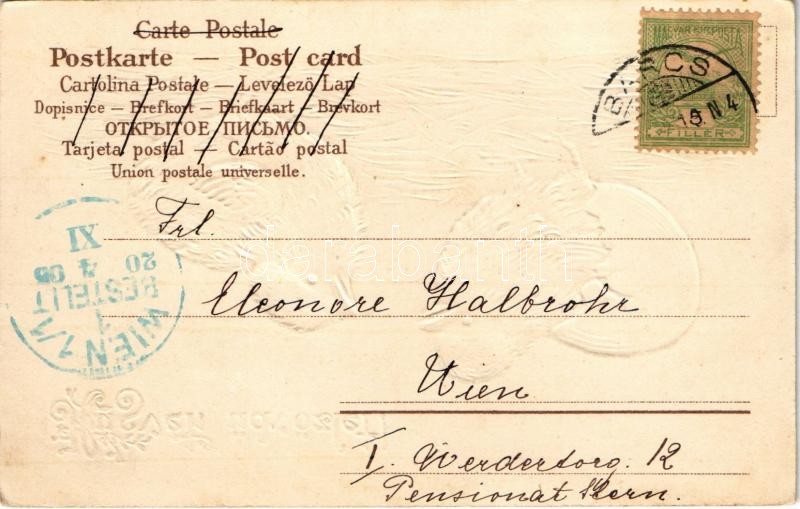 Carte Postale
Postkarte — Post card
Cartolina Postale — Levelező Lap
Dopisnice — Brefkort — Briefkaart — Brevkort
ОТКРЫТОЕ ПИСЬМО.
Tarjeta postal — Cartão postal
Union postale universelle.
MAGYAR KIR. POSTA
FILLER
BARCS
N 4
Frl.
Eleonore Halbrohr
Wien
I. Werdertorg. 12
Pensionat Stern.
WIEN 1/1
1
BESTELLT
20 4 05
XI
darabanth